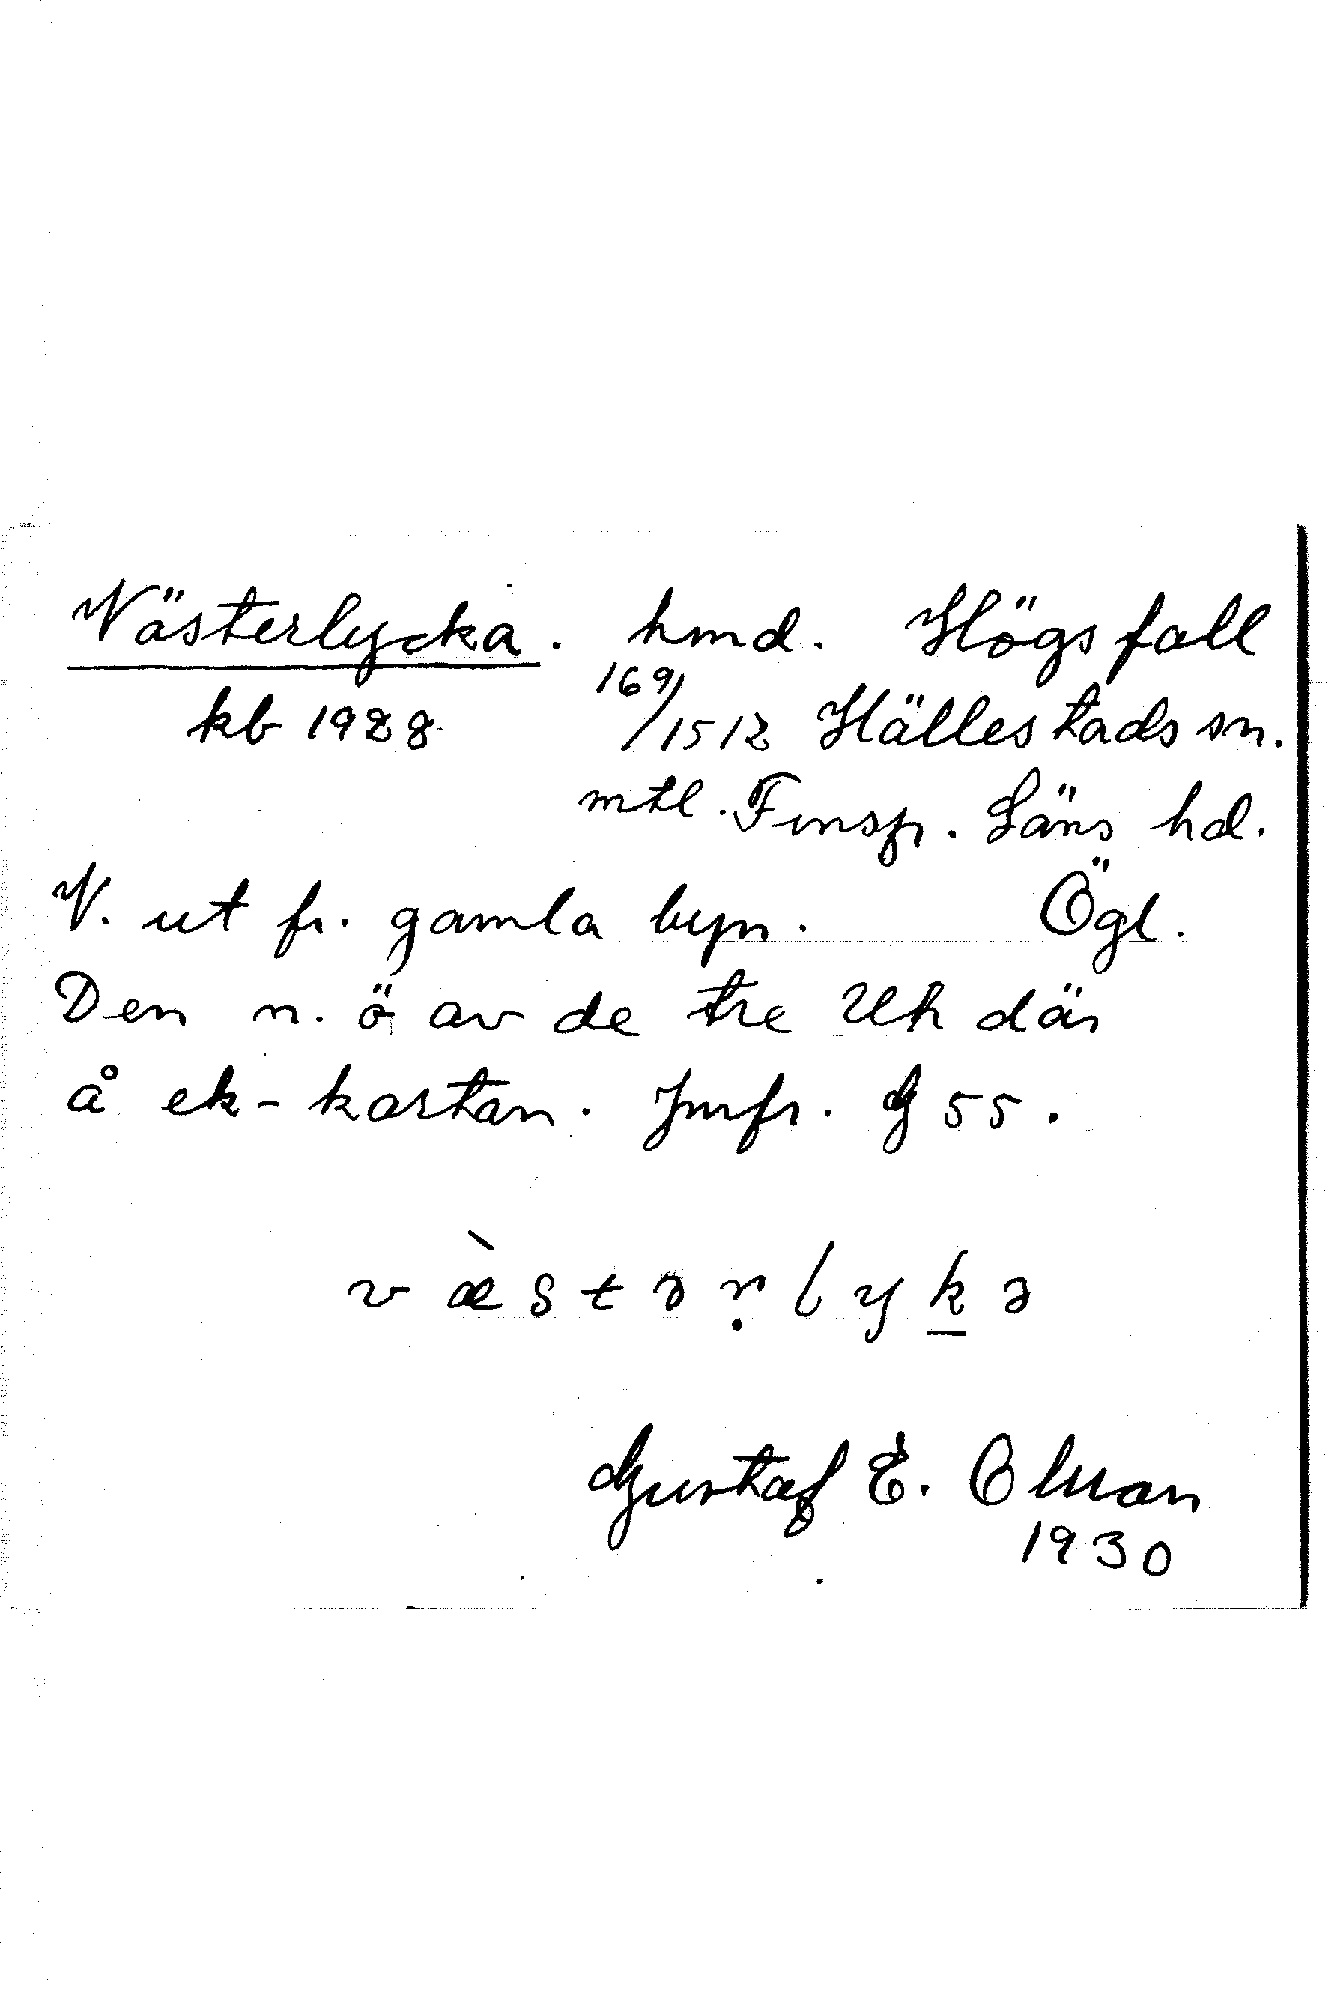 Västerlycka. hmd. Högsfall
kb 1928 169/1512 Hällestads sn.
mtl. Finsp. Läns hd.
V. ut fr. gamla byn. Ögl.
Den n. ö av de tre Uh där
å ek-kartan. Jmfr. G 55.
væ̀stərḷykə
Gustaf E. Olman
1930